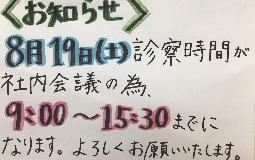 〈お知らせ〉
8月19日(土)診察時間が
社内会議の為、
9:00〜15:30までに
なります。よろしくお願いいたします。